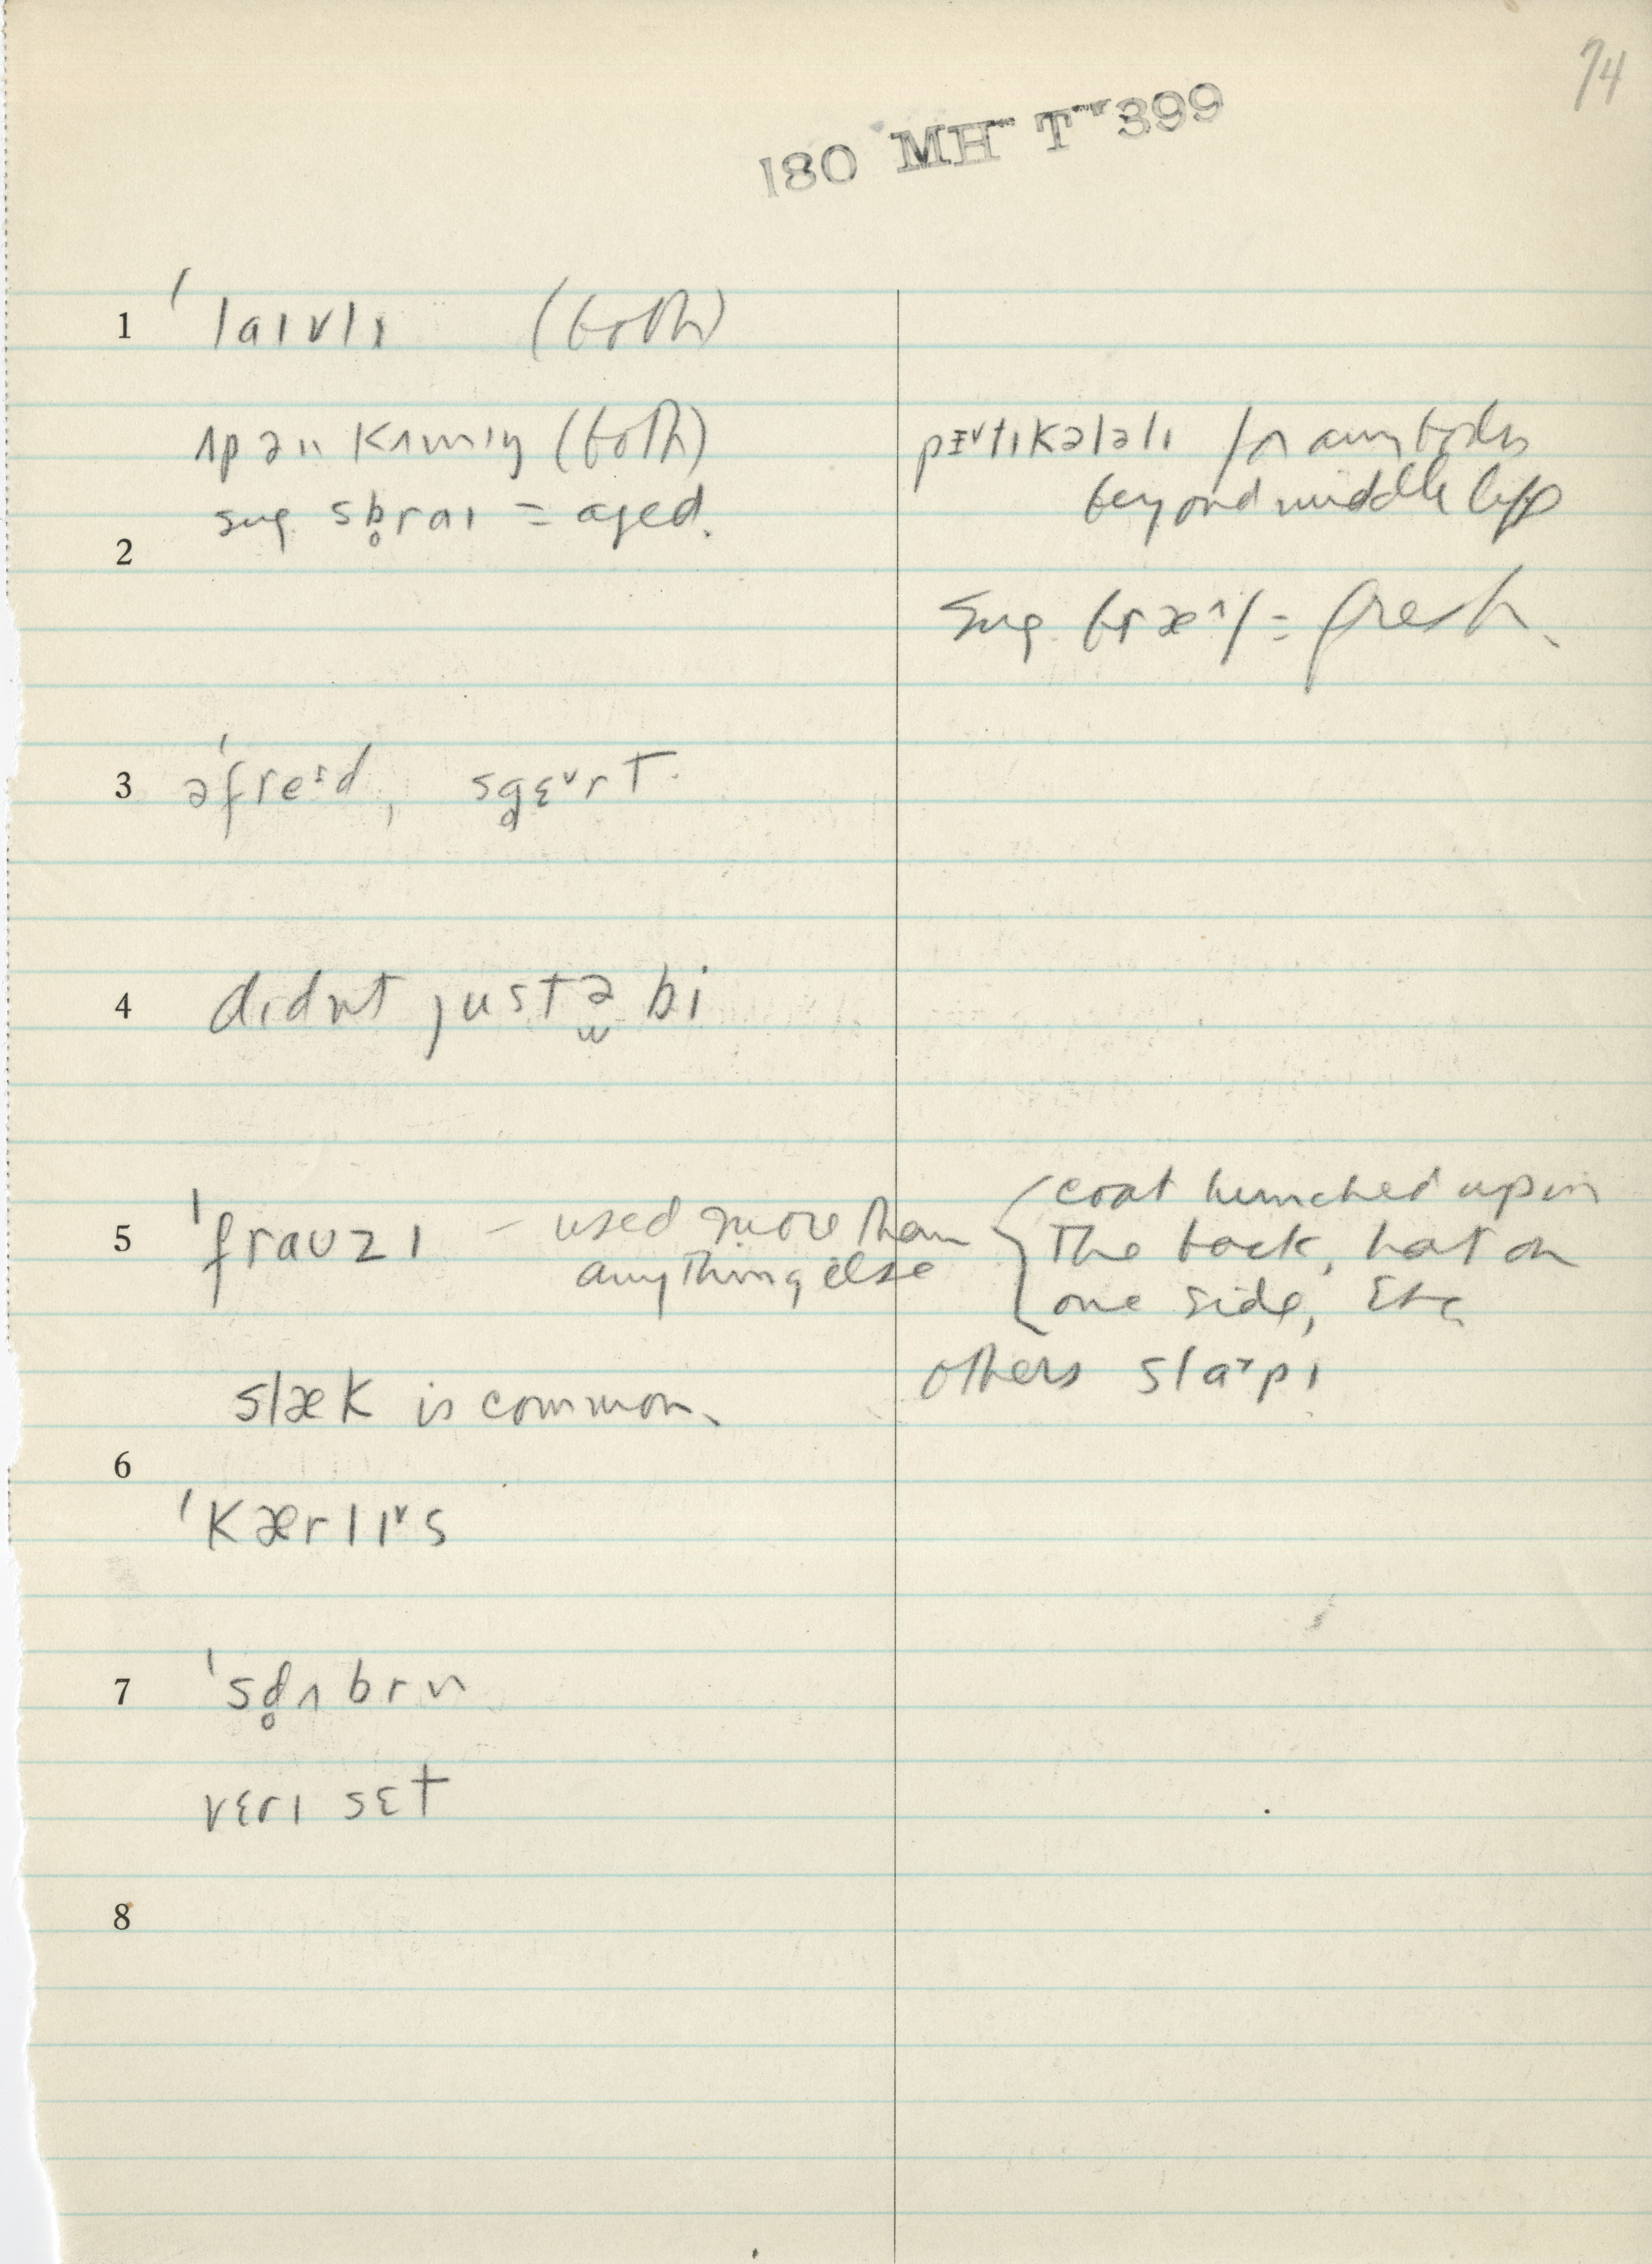 74
180 MH T 399
1 ˈlaɪvlɪ (both)
ʌp ən kʌmɪŋ (both)
pɜ˅tɪkələlɪ for anybody
sug. sb̥raɪ = aged.
beyond middle life
2
sug. = fresh.
3 əˈfreɪd, sg̥ɛ˅rt.
4 dɪdnt justə bi
5 ˈfraʊzɪ – used more than
anything else
{ coat hunched up in
the back, hat on
one side, etc.
others sla˃pɪ
slæk is common.
6
ˈkærlɪ˅s
7 ˈsd̥ʌbrn
vɛrɪ sɛt
8